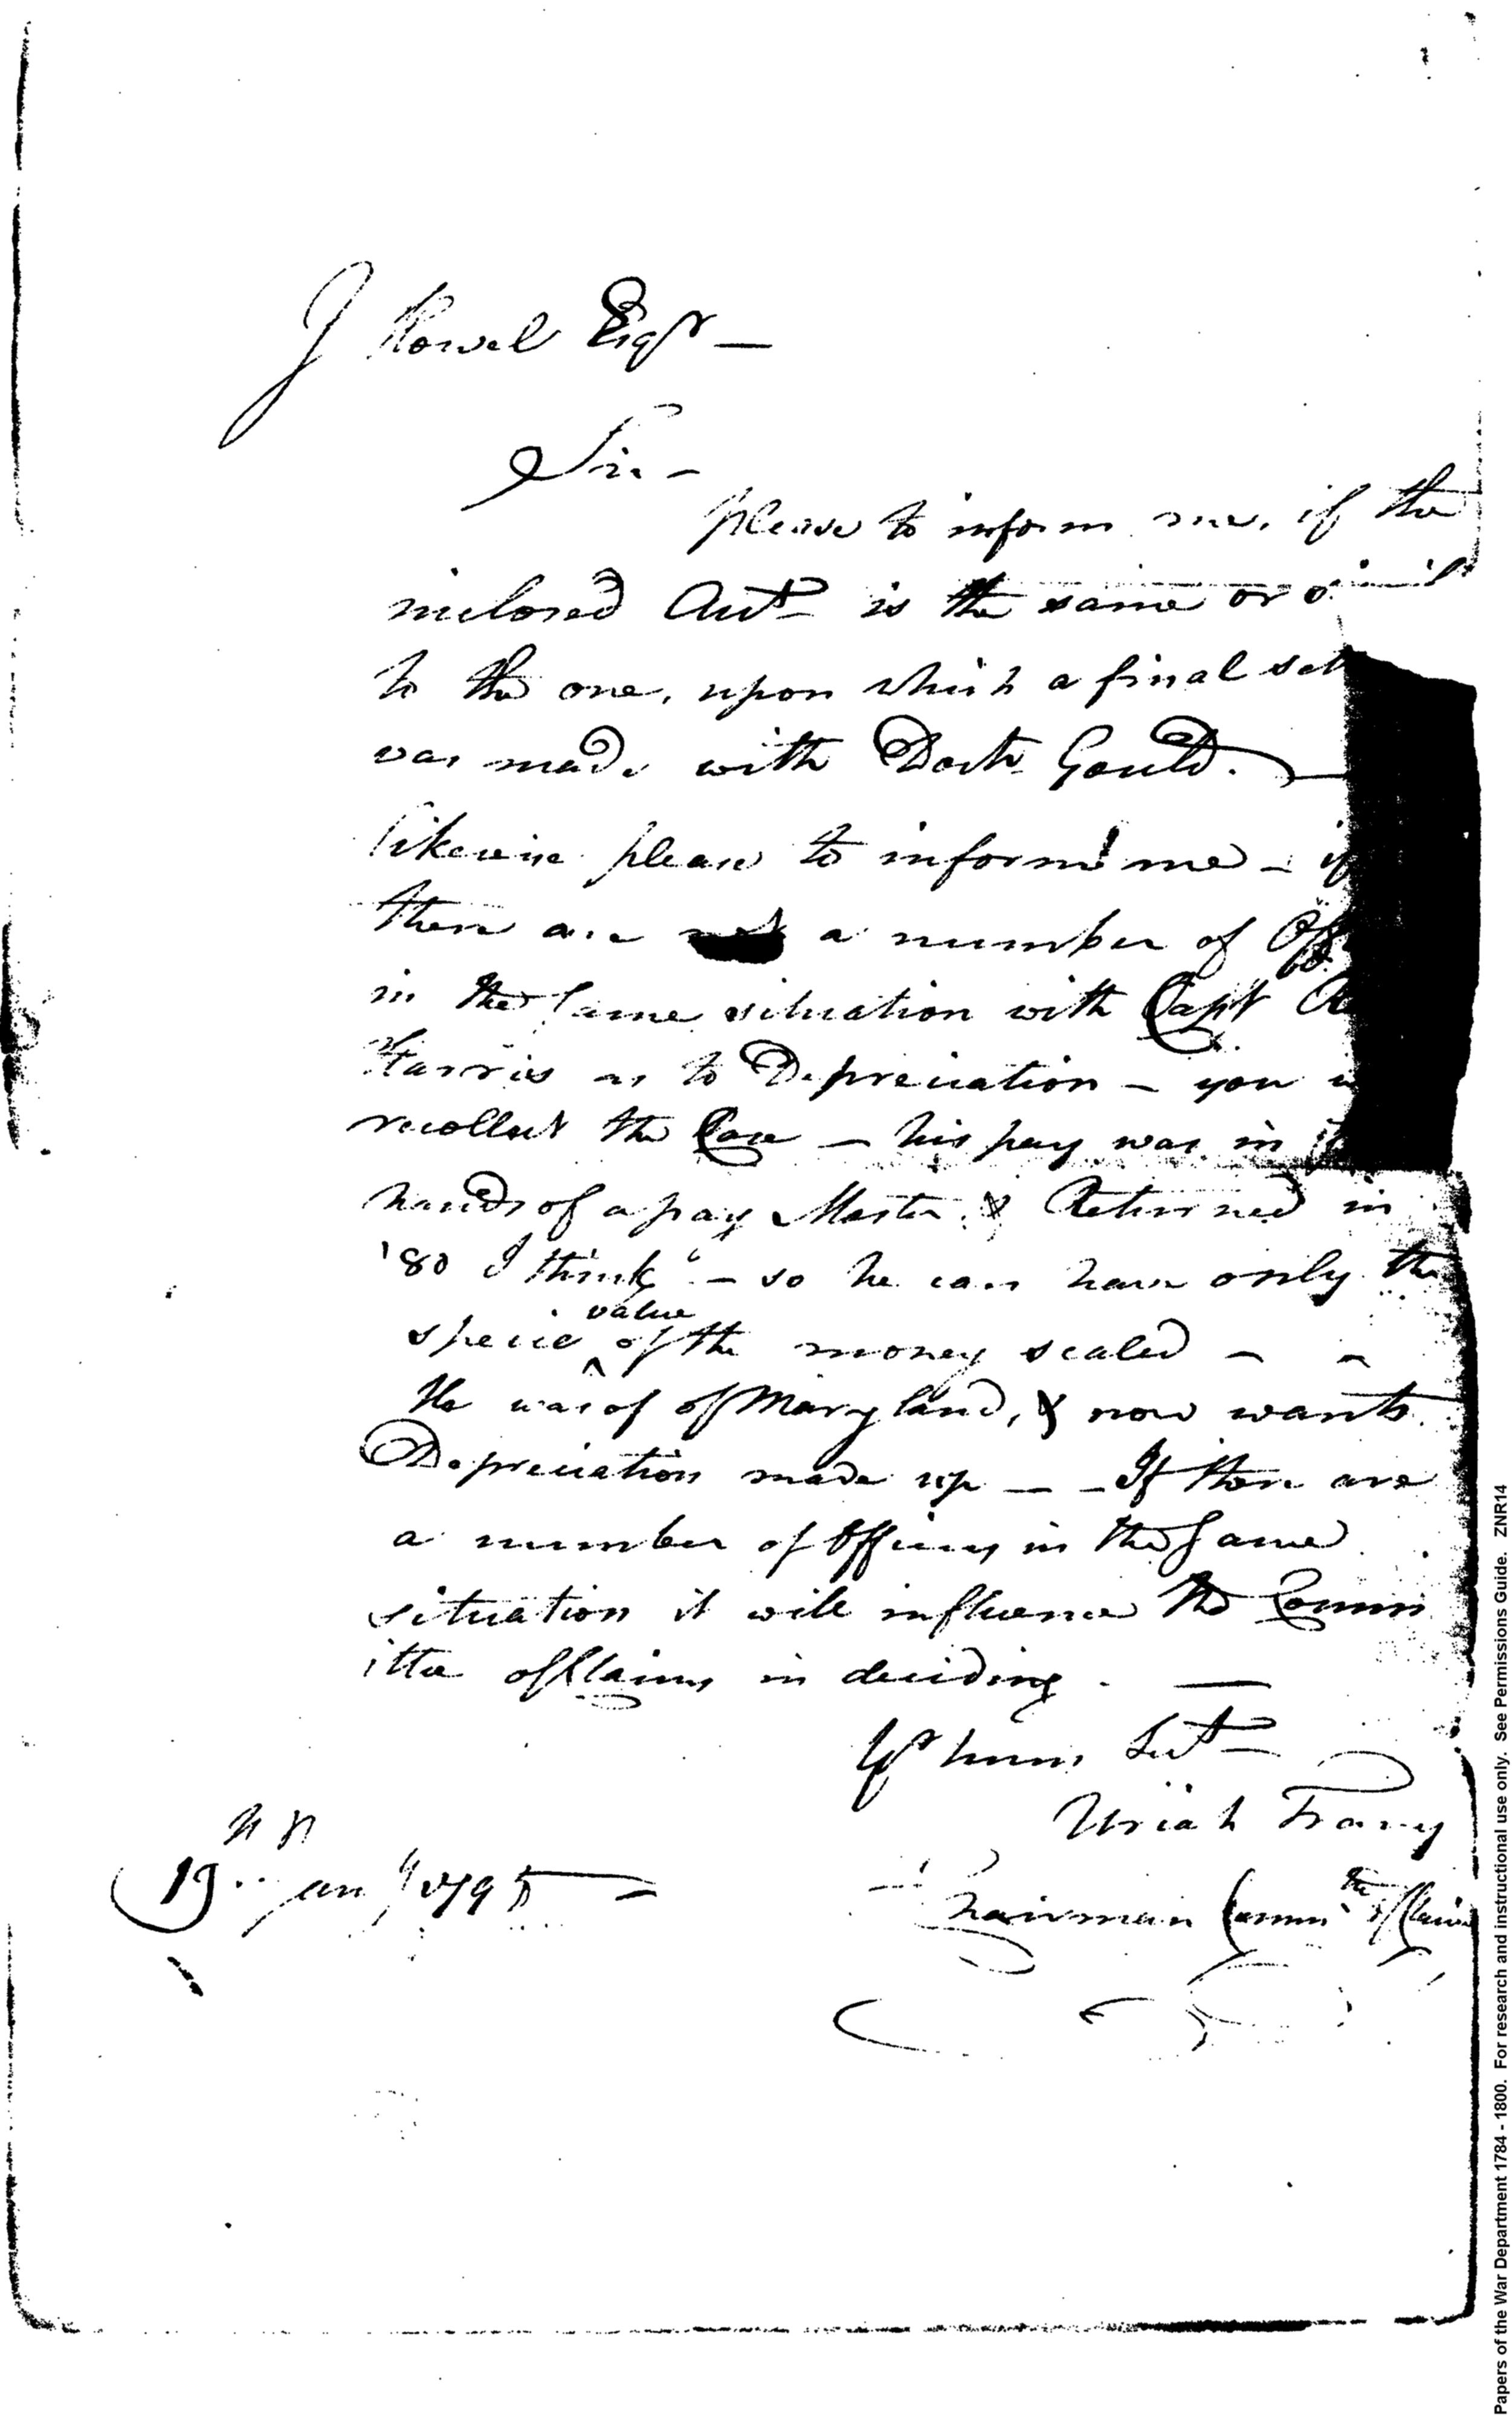 J Howel Esqr —
Sir —
please to inform me, if the
inclosed Acct is the same or
to the one, upon which a final
was made with Doctr Gould. —
likewise please to inform me — if
there are a number of
in the same situation with Capt
Harris as to Depreciation — you
recollect the Case — his pay was in
hands of a pay Master & Returned in
'80 I think — so he can have only the
specie value of the money scaled — —
He was of of Maryland, & now wants
Depreciation made up — — If there are
a number of Officers in the same
situation it will influence the Comm
ittee of Claims in deciding. —
Yr hum Sert
Uriah Tracy
Chairman Commtee of Claims
19 Jany 1795 —
Papers of the War Department 1784 - 1800. For research and instructional use only. See Permissions Guide. ZNR14